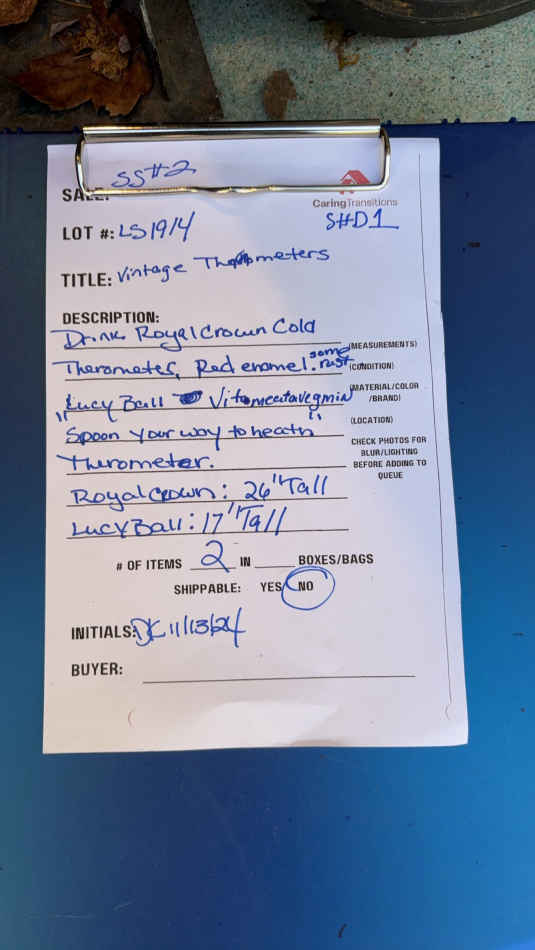 SALE: SS#2
CaringTransitions
LOT #: LS1914 S#D1
TITLE: Vintage Thermometers
DESCRIPTION:
Drink Royal Crown Cold
(MEASUREMENTS)
Therometer, Red enamel. some rust
(CONDITION)
"Lucy Ball Vitameatavegmin
(MATERIAL/COLOR
/BRAND)
Spoon your way to heath"
(LOCATION)
Therometer.
CHECK PHOTOS FOR
BLUR/LIGHTING
BEFORE ADDING TO
QUEUE
Royal Crown: 26" Tall
Lucy Ball: 17" Tall
# OF ITEMS 2 IN BOXES/BAGS
SHIPPABLE: YES/ NO
INITIALS: DC 11/13/24
BUYER: